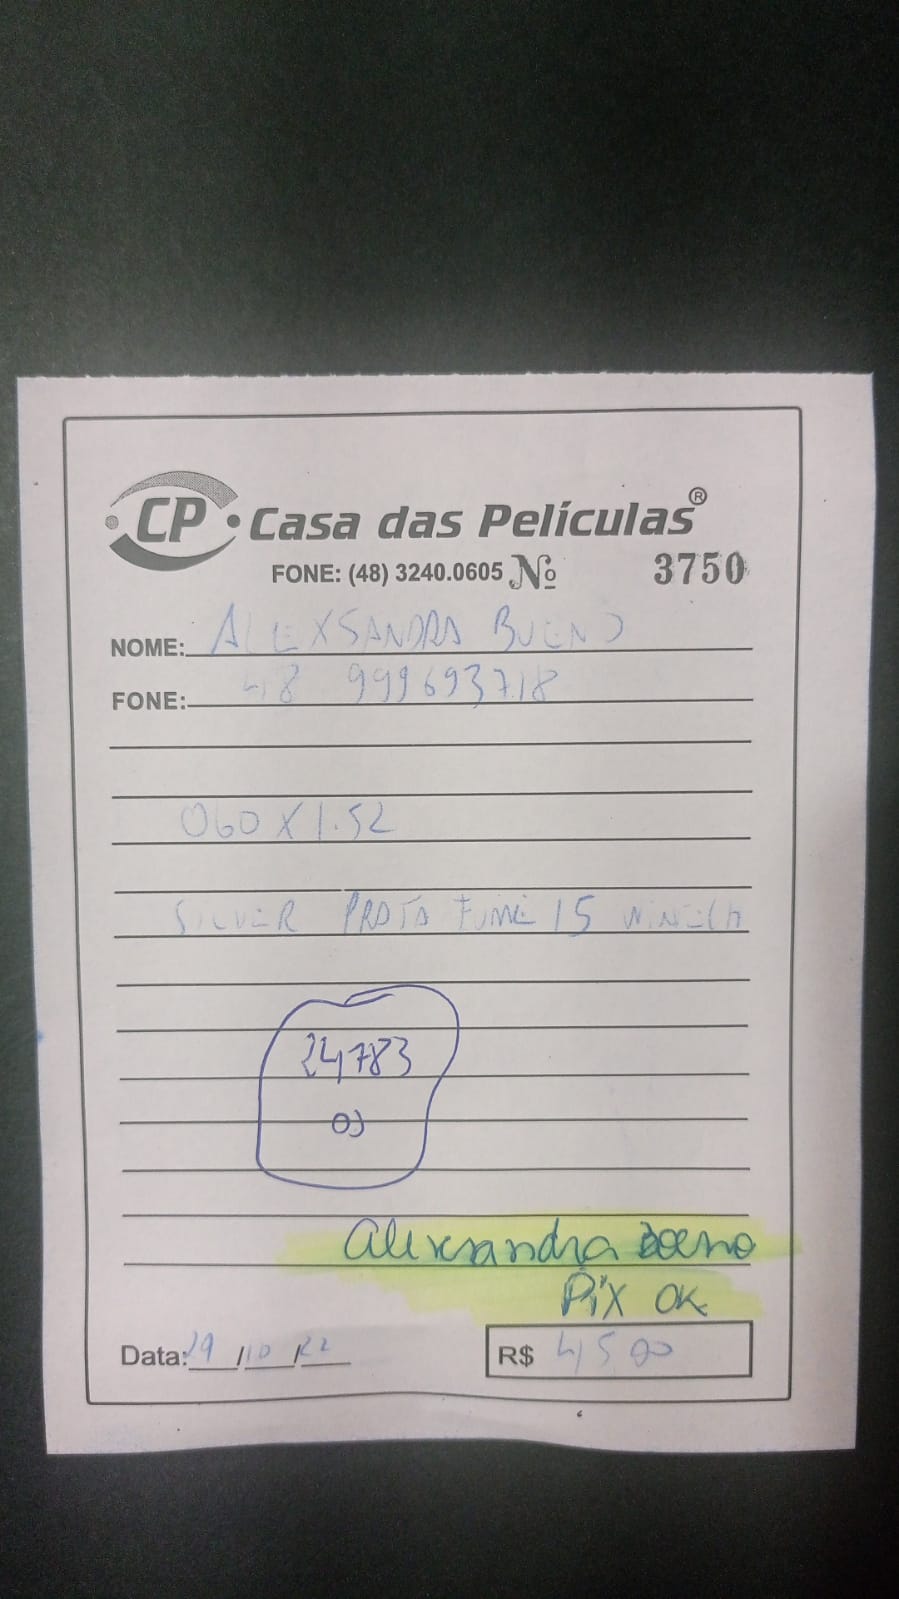 CP Casa das Películas®
FONE: (48) 3240.0605 Nº 3750
NOME: ALEXSANDRA BUENO
FONE: 48 999693718
060 X 1.52
SILVER PRATA FUMÊ 15
24783
Alexsandra Boeno
Pix OK
Data: 29/10/22 R$ 45,00